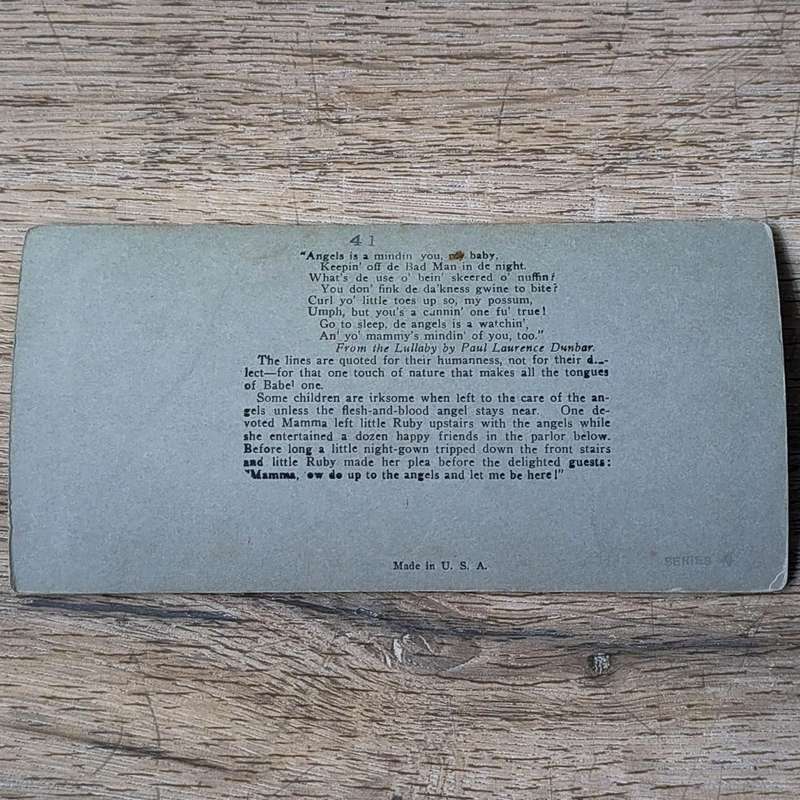 41
"Angels is a mindin' you, my baby,
Keepin' off de Bad Man in de night.
What's de use o' bein' skeered o' nuffin?
You don' fink de da'kness gwine to bite?
Curl yo' little toes up so, my possum,
Umph, but you's a cunnin' one fu' true!
Go to sleep, de angels is a watchin',
An' yo' mammy's mindin' of you, too."
From the Lullaby by Paul Laurence Dunbar.
The lines are quoted for their humanness, not for their
lect—for that one touch of nature that makes all the tongues
of Babel one.
Some children are irksome when left to the care of the an-
gels unless the flesh-and-blood angel stays near. One de-
voted Mamma left little Ruby upstairs with the angels while
she entertained a dozen happy friends in the parlor below.
Before long a little night-gown tripped down the front stairs
and little Ruby made her plea before the delighted guests:
"Mamma, do up to the angels and let me be here!"
Made in U. S. A.
SERIES